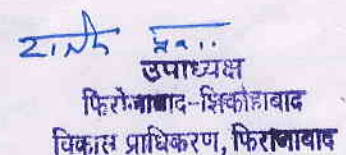 उपाध्यक्ष
फिरोजाबाद-शिकोहाबाद
विकास प्राधिकरण, फिरोजाबाद